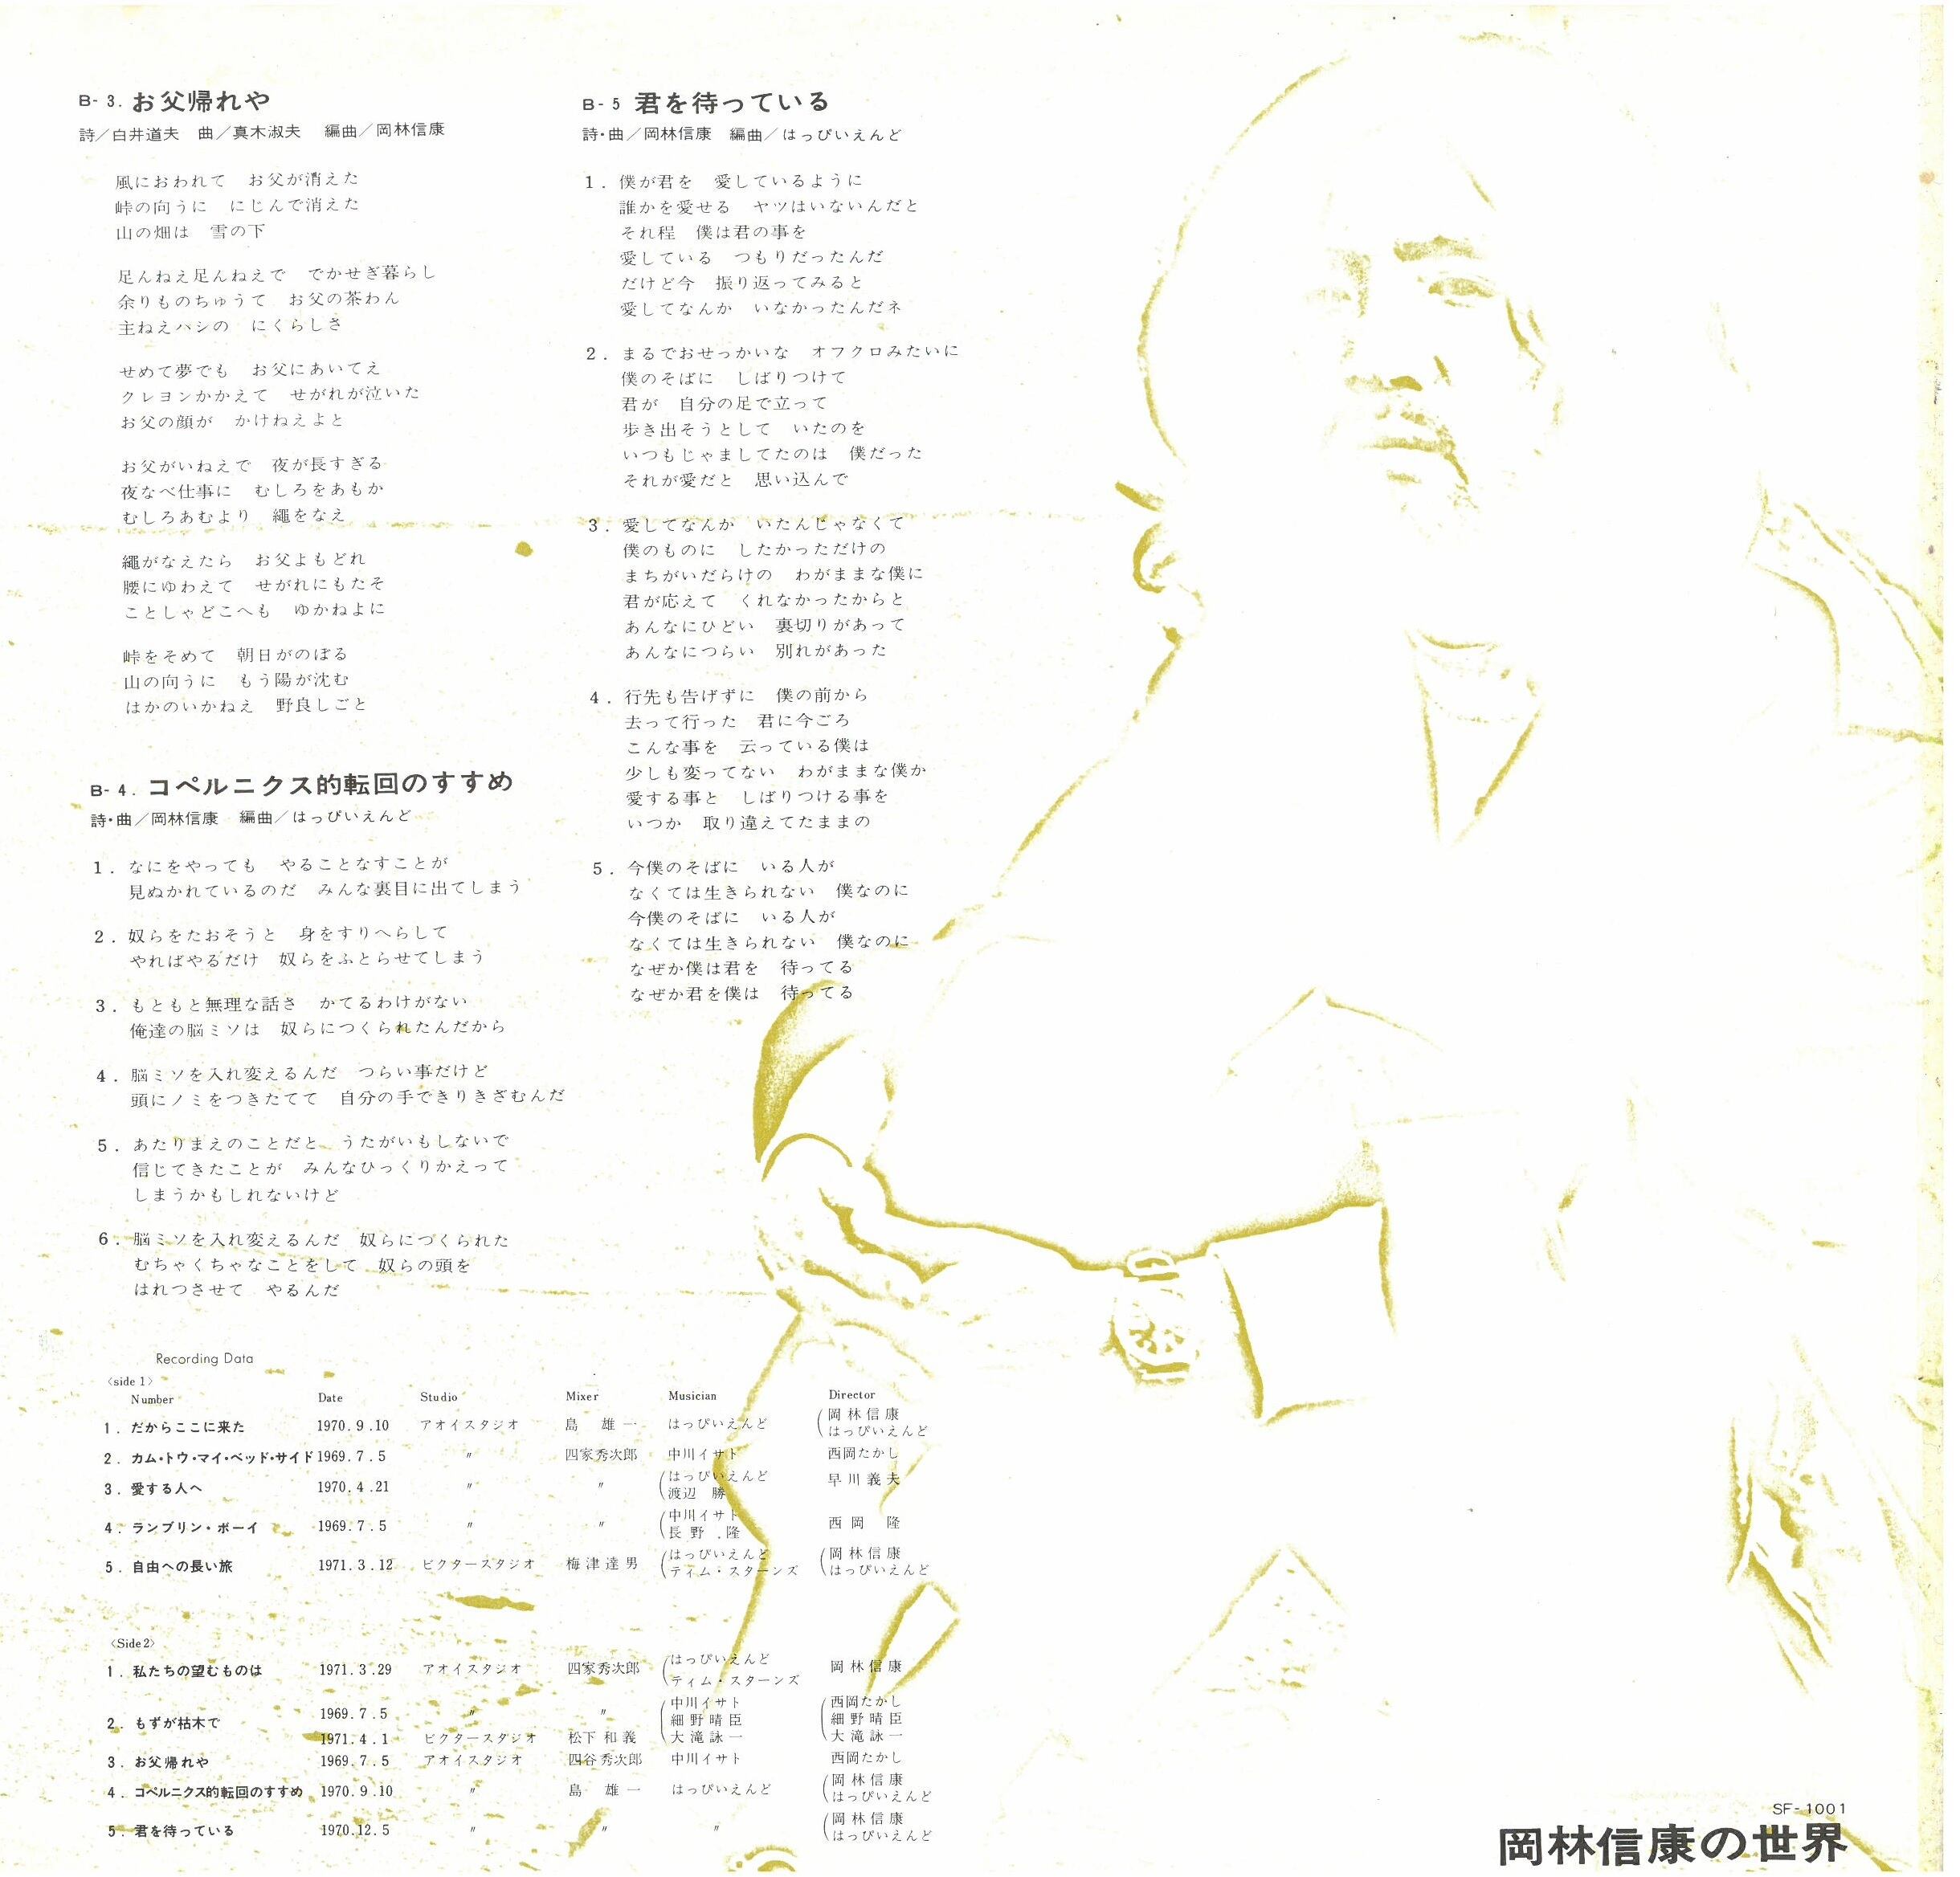 B- 3. お父帰れや
詩／白井道夫　曲／真木淑夫　編曲／岡林信康
風におわれて　お父が消えた
峠の向うに　にじんで消えた
山の畑は　雪の下
足んねえ足んねえで　でかせぎ暮らし
余りものちゅうて　お父の茶わん
主ねえハシの　にくらしさ
せめて夢でも　お父にあいてえ
クレヨンかかえて　せがれが泣いた
お父の顔が　かけねえよと
お父がいねえで　夜が長すぎる
夜なべ仕事に　むしろをあもか
むしろあむより　縄をなえ
縄がなえたら　お父よもどれ
腰にゆわえて　せがれにもたそ
ことしゃどこへも　ゆかねよに
峠をそめて　朝日がのぼる
山の向うに　もう陽が沈む
はかのいかねえ　野良しごと
B- 4. コペルニクス的転回のすすめ
詩・曲／岡林信康　編曲／はっぴいえんど
1. なにをやっても　やることなすことが
見ぬかれているのだ　みんな裏目に出てしまう
2. 奴らをたおそうと　身をすりへらして
やればやるだけ　奴らをふとらせてしまう
3. もともと無理な話さ　かてるわけがない
俺達の脳ミソは　奴らにつくられたんだから
4. 脳ミソを入れ変えるんだ　つらい事だけど
頭にノミをつきたてて　自分の手できりきざむんだ
5. あたりまえのことだと　うたがいもしないで
信じてきたことが　みんなひっくりかえって
しまうかもしれないけど
6. 脳ミソを入れ変えるんだ　奴らにつくられた
むちゃくちゃなことをして　奴らの頭を
はれつさせて　やるんだ
B- 5 君を待っている
詩・曲／岡林信康　編曲／はっぴいえんど
1. 僕が君を　愛しているように
誰かを愛せる　ヤツはいないんだと
それ程　僕は君の事を
愛している　つもりだったんだ
だけど今　振り返ってみると
愛してなんか　いなかったんだネ
2. まるでおせっかいな　オフクロみたいに
僕のそばに　しばりつけて
君が　自分の足で立って
歩き出そうとして　いたのを
いつもじゃましてたのは　僕だった
それが愛だと　思い込んで
3. 愛してなんか　いたんじゃなくて
僕のものに　したかっただけの
まちがいだらけの　わがままな僕に
君が応えて　くれなかったからと
あんなにひどい　裏切りがあって
あんなにつらい　別れがあった
4. 行先も告げずに　僕の前から
去って行った　君に今ごろ
こんな事を　云っている僕は
少しも変ってない　わがままな僕か
愛する事と　しばりつける事を
いつか　取り違えてたままの
5. 今僕のそばに　いる人が
なくては生きられない　僕なのに
今僕のそばに　いる人が
なくては生きられない　僕なのに
なぜか僕は君を　待ってる
なぜか君を僕は　待ってる
Recording Data
〈side 1〉
Number　Date　Studio　Mixer　Musician　Director
1. だからここに来た　1970.9.10　アオイスタジオ　島　雄一　はっぴいえんど　(岡林信康
はっぴいえんど
2. カム・トウ・マイ・ベッド・サイド　1969.7.5　〃　四家秀次郎　中川イサト　西岡たかし
3. 愛する人へ　1970.4.21　〃　〃　(はっぴいえんど　早川義夫
渡辺　勝
4. ランブリン・ボーイ　1969.7.5　〃　〃　(中川イサト　西岡　隆
長野　隆
5. 自由への長い旅　1971.3.12　ビクタースタジオ　梅津達男　(はっぴいえんど　(岡林信康
ティム・スターンズ　はっぴいえんど
〈Side2〉
1. 私たちの望むものは　1971.3.29　アオイスタジオ　四家秀次郎　(はっぴいえんど　岡林信康
ティム・スターンズ
2. もずが枯木で　1969.7.5　〃　〃　(中川イサト　(西岡たかし
細野晴臣　細野晴臣
1971.4.1　ビクタースタジオ　松下和義　大滝詠一　大滝詠一
3. お父帰れや　1969.7.5　アオイスタジオ　四谷秀次郎　中川イサト　西岡たかし
4. コペルニクス的転回のすすめ　1970.9.10　〃　島　雄一　はっぴいえんど　(岡林信康
はっぴいえんど
5. 君を待っている　1970.12.5　〃　〃　〃　(岡林信康
はっぴいえんど
SF-1001
岡林信康の世界